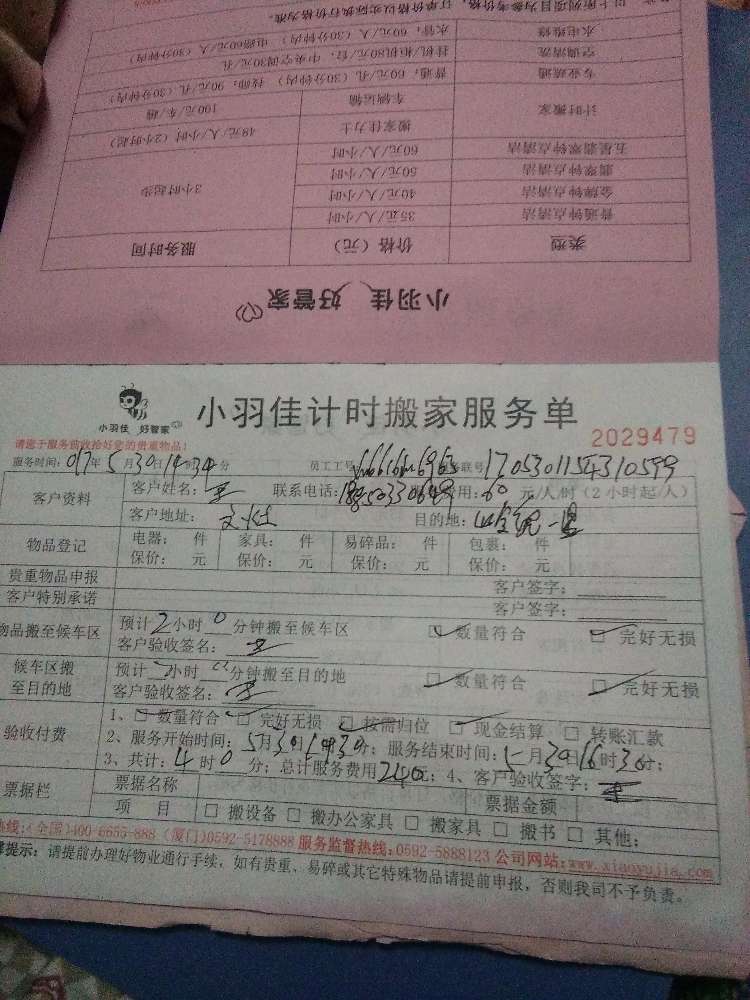 小羽佳 好管家
类型 价格（元） 服务时间
普通钟点清洁 35元/人/小时 3小时起步
金牌钟点清洁 40元/人/小时
翡翠钟点清洁 50元/人/小时
五星翡翠钟点清洁 60元/人/小时
计时搬家 搬家佳力士 48元/人/小时（2小时起）
车辆运输 100元/车/趟
专业疏通 普通：60元/孔（30分钟内） 技师：90元/孔（30分钟内）
空调清洗 挂机/柜机80元/台，中央空调30元/孔
水电维修 水管：60元/人（30分钟内） 电路60元/人（30分钟内）
以上所列项目为参考价格，订单价格以实际执行价格为准。
小羽佳 好管家
小羽佳计时搬家服务单
2029479
请您于服务前收拾好您的贵重物品！
服务时间：017年5月30日14时34分 员工工号 联号：170530115431059
客户资料 客户姓名：王 联系电话： 费用：60元/人/时（2小时起/人）
客户地址：文灶 目的地：
物品登记 电器： 件 家具： 件 易碎品： 件 包裹： 件
保价： 元 保价： 元 保价： 元 保价： 元
贵重物品申报 客户签字：
客户特别承诺 客户签字：
物品搬至候车区 预计2小时0分钟搬至候车区 数量符合 完好无损
客户验收签名：王
候车区搬至目的地 预计 小时 分钟搬至目的地 数量符合 完好无损
客户验收签名：王
验收付费 1、数量符合 完好无损 按需归位 现金结算 转账汇款
2、服务开始时间：5月30日 时30分；服务结束时间：5月30日16时30分；
3、共计：4时0分；总计服务费用240元；4、客户验收签字：王
票据栏 票据名称 票据金额
项 目 搬设备 搬办公家具 搬家具 搬书 其他：
热线：(全国)400-6655-888 (厦门)0592-5178888 服务监督热线：0592-5888123 公司网站：www.xiaoyujia.com
提示：请提前办理好物业通行手续，如有贵重、易碎或其它特殊物品请提前申报，否则我司不予负责。